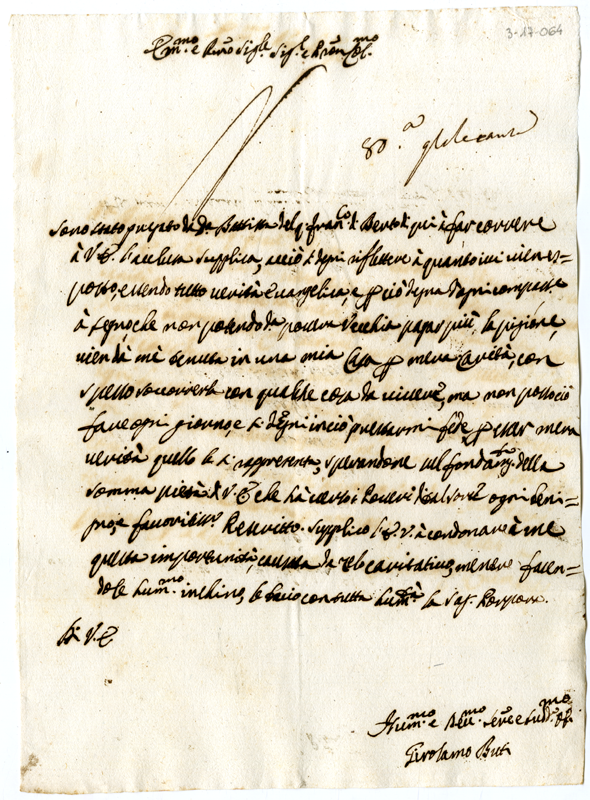 3-17-064
Em.mo e Rev.mo Sig.re Sig.r e Pron Col.mo
Sono stato pregato da Batista del q. Fran.co di Berto di qui à far correre
à V. E. l'acclusa supplica, acciò si degni riflettere à quanto ivi vien es=
posto, essendo tutto verità Evangelica, e per ciò degna d'ogni compass.e
à segno che non potendo da povera Vecchia pagar più la pigione,
vien dà mè tenuta in una mia Casa per mera Carità, con
spesso soccorrerla con qualche cosa da vivere, ma non posso ciò
fare ogni giorno, e si degni in ciò prestarmi fede per esser mera
verità quello le si rappresenta, sperandone nel fondam.to della
somma pietà di V. E. che hà verso i Poveri
ogni beni=
gno, e favorevole Rescritto. Supplico l'E. V. à condonare à me
questa importunità, causata da zelo caritativo, mentre facen=
dole hum.mo inchino, le bacio con tutta hum.tà la Sag. Porpora.
Di V. E.
Hum.mo e Dev.mo Serv.e e
Girolamo Buti